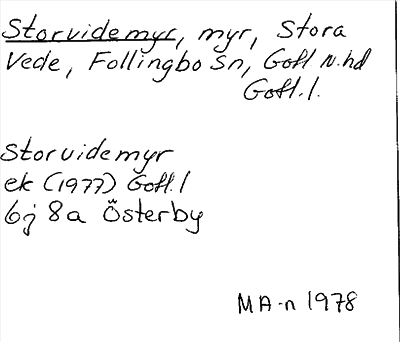 Storvidemyr, myr, Stora
Vede, Follingbo Sn, Gotl N.hd
Gotl.l.
Storvidemyr
ek (1977) Gotl.l
6j 8a Österby
MA-n 1978